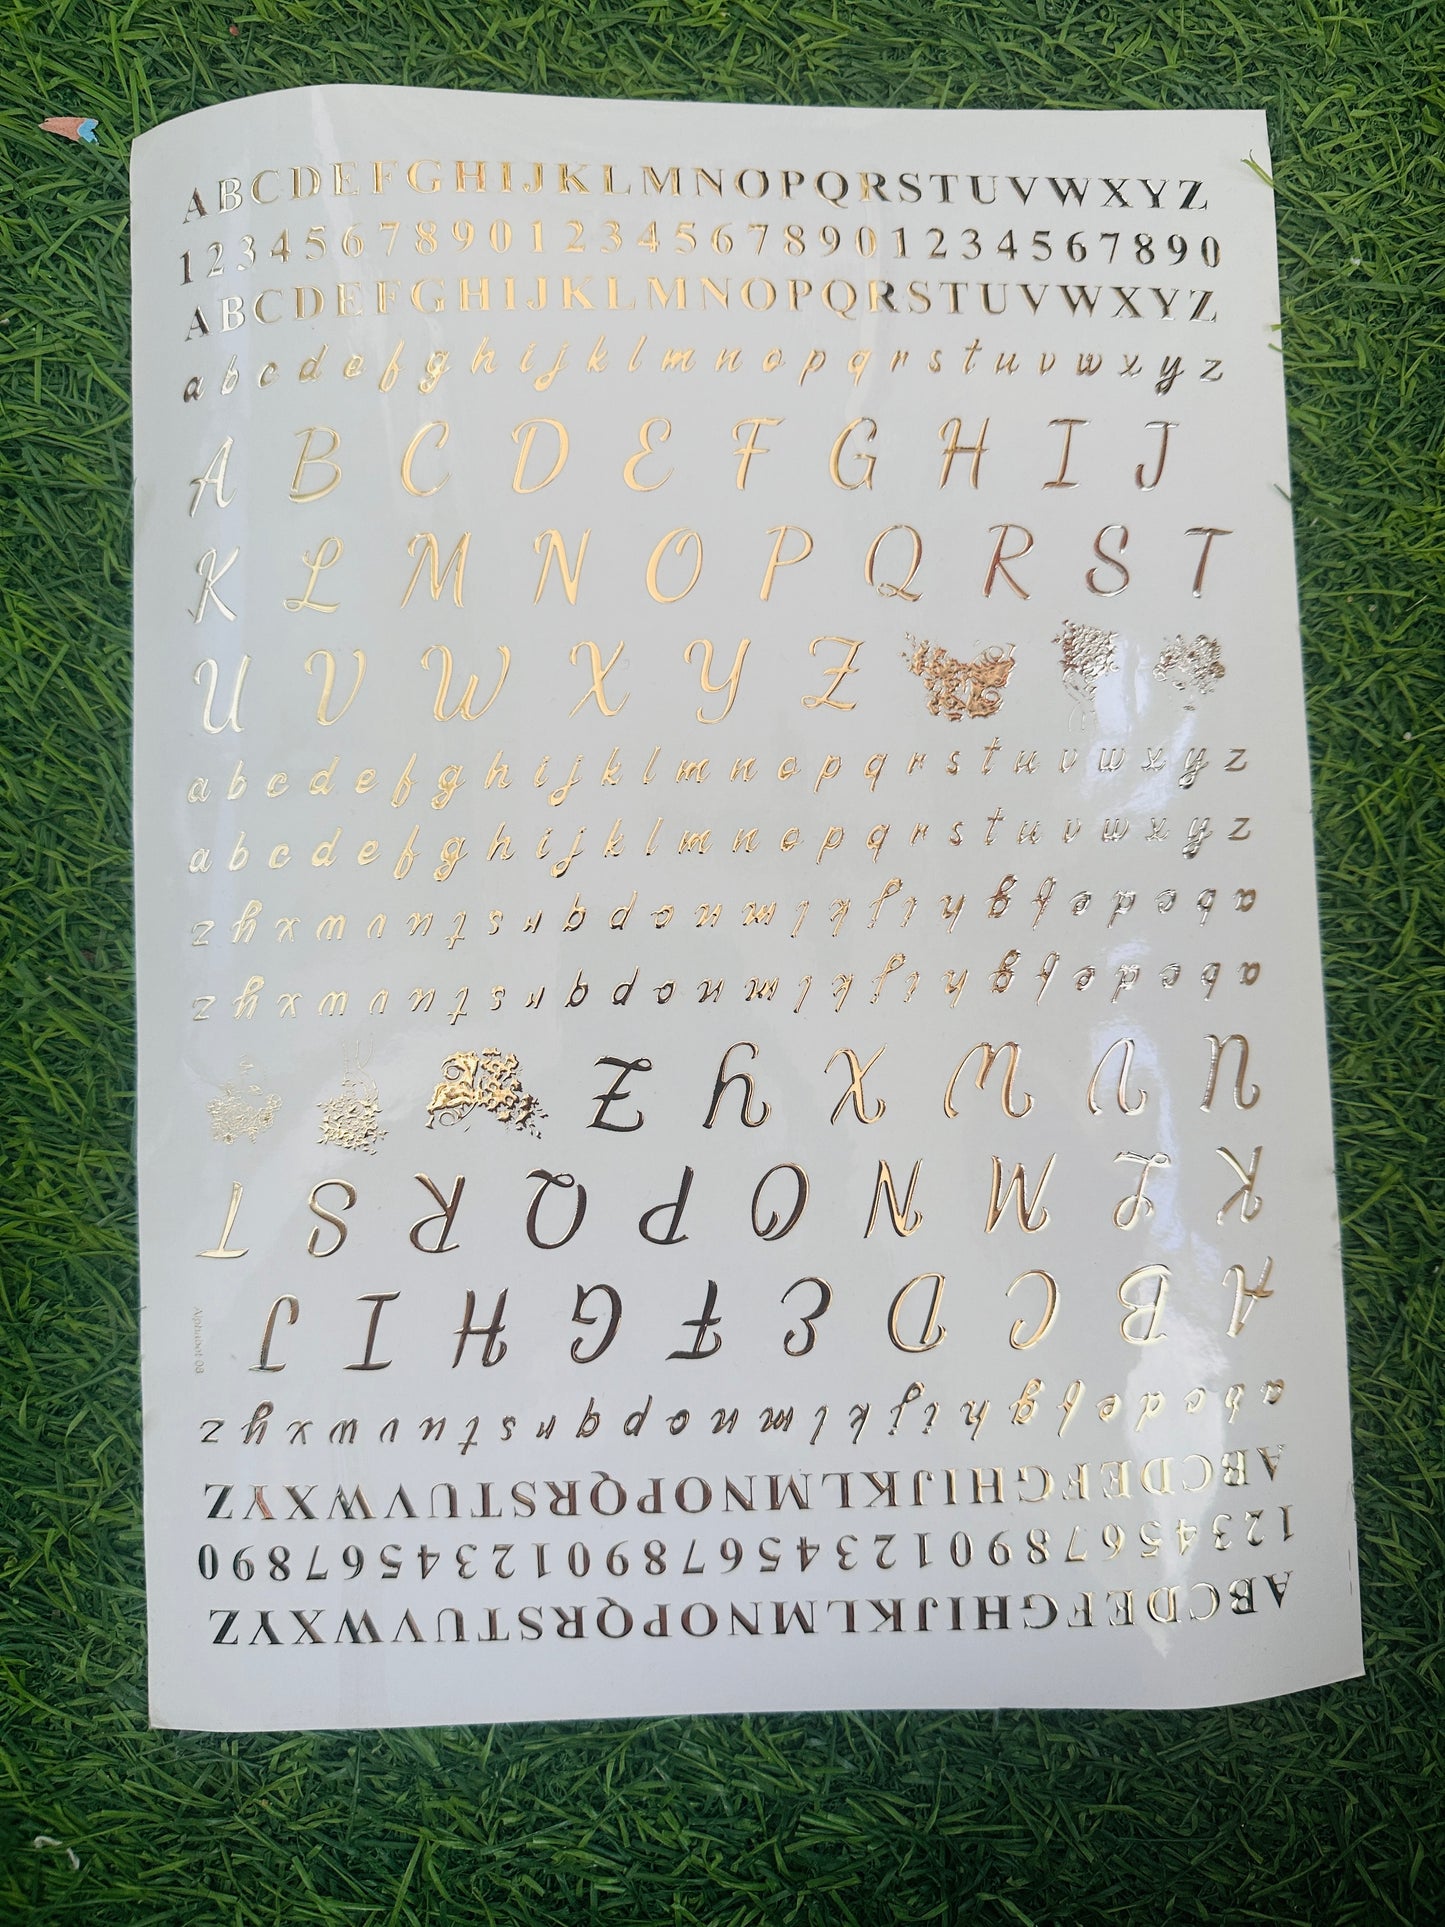 A B C D E F G H I J K L M N O P Q R S T U V W X Y Z
1 2 3 4 5 6 7 8 9 0 1 2 3 4 5 6 7 8 9 0 1 2 3 4 5 6 7 8 9 0
A B C D E F G H I J K L M N O P Q R S T U V W X Y Z
a b c d e f g h i j k l m n o p q r s t u v w x y z
A B C D E F G H I J
K L M N O P Q R S T
U V W X Y Z
a b c d e f g h i j k l m n o p q r s t u v w x y z
a b c d e f g h i j k l m n o p q r s t u v w x y z
a b c d e f g h i j k l m n o p q r s t u v w x y z
a b c d e f g h i j k l m n o p q r s t u v w x y z
U V W X Y Z
K L M N O P Q R S T
A B C D E F G H I J
Alphabet 08
a b c d e f g h i j k l m n o p q r s t u v w x y z
A B C D E F G H I J K L M N O P Q R S T U V W X Y Z
1 2 3 4 5 6 7 8 9 0 1 2 3 4 5 6 7 8 9 0 1 2 3 4 5 6 7 8 9 0
A B C D E F G H I J K L M N O P Q R S T U V W X Y Z